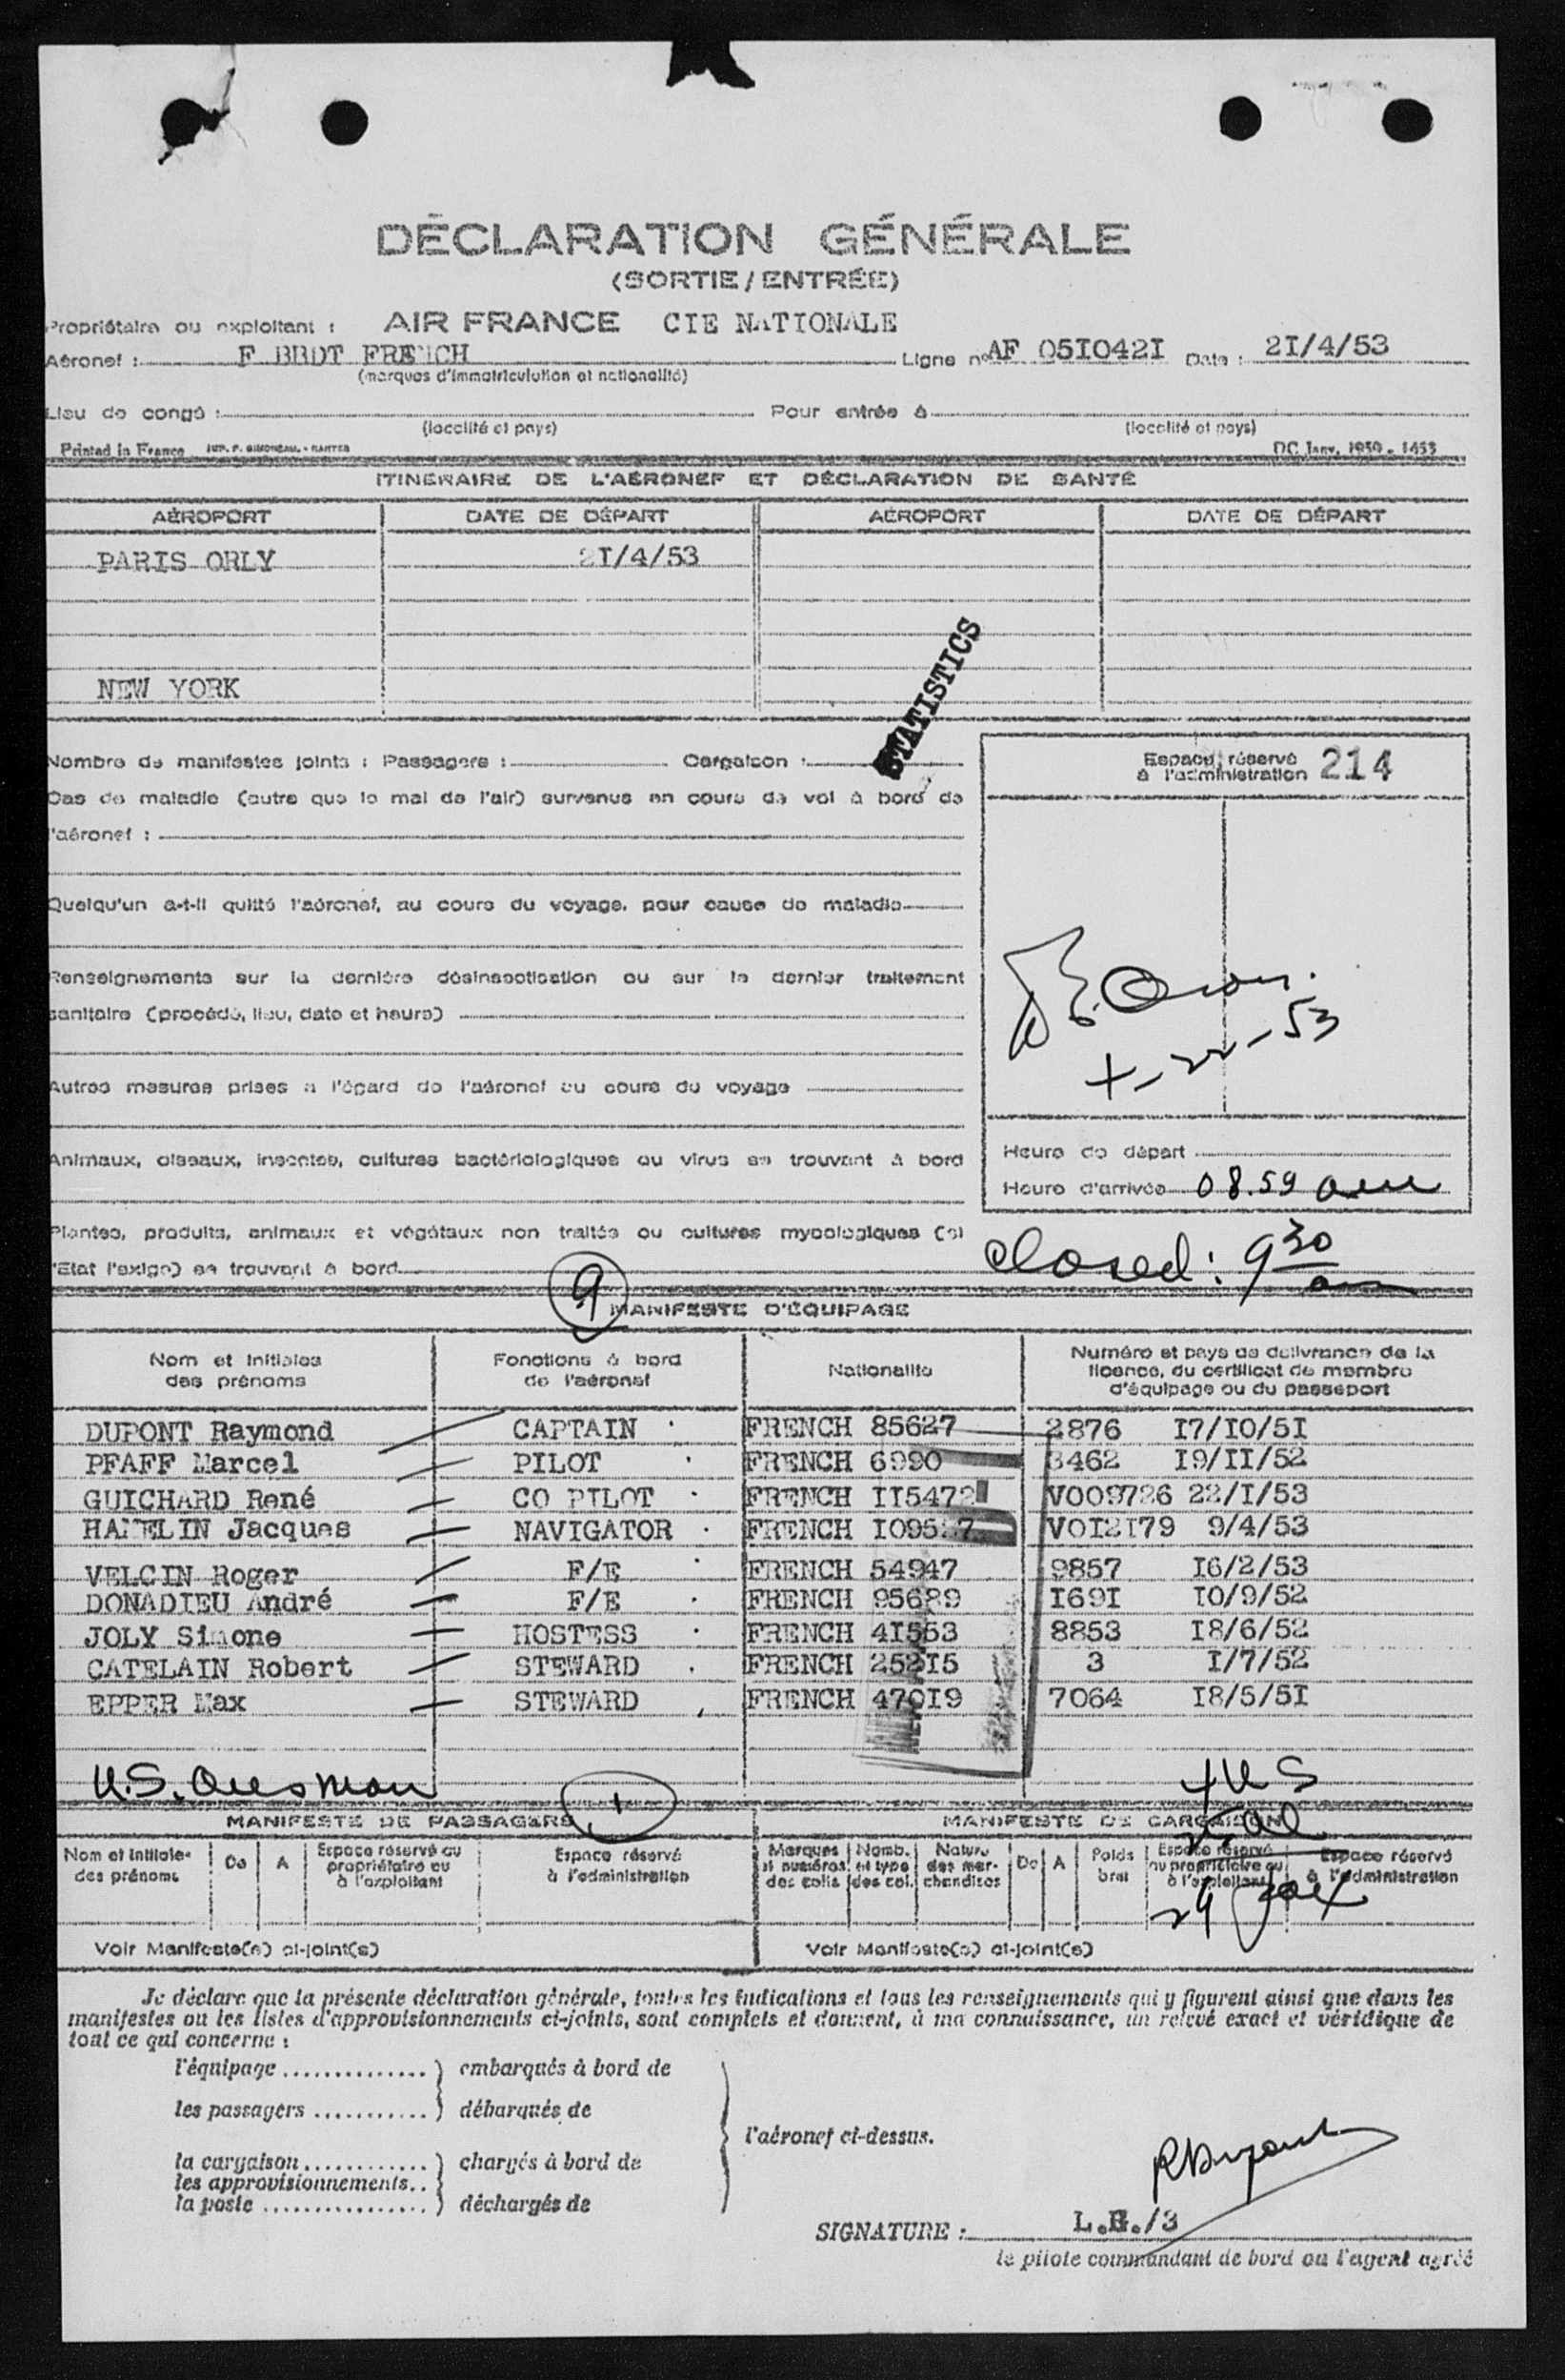 DÉCLARATION GÉNÉRALE
(SORTIE/ENTRÉE)
Propriétaire ou exploitant : AIR FRANCE CIE NATIONALE
Aéronef : F BHDT FRENCH Ligne n° AF 05I042I Date : 2I/4/53
(marques d'immatriculation et nationalité)
Lieu de congé : Pour entrée à
(localité et pays) (localité et pays)
Printed in France DC Janv. 1950 - 1453
ITINERAIRE DE L'AÉRONEF ET DÉCLARATION DE SANTÉ
AÉROPORT DATE DE DÉPART AÉROPORT DATE DE DÉPART
PARIS ORLY 2I/4/53
NEW YORK
STATISTICS
Nombre de manifestes joints : Passagers : Cargaison :
Cas de maladie (autre que le mal de l'air) survenus en cours de vol à bord de
l'aéronef :
Quelqu'un a-t-il quitté l'aéronef, au cours du voyage, pour cause de maladie
Renseignements sur la dernière désinsectisation ou sur le dernier traitement
sanitaire (procédé, lieu, date et heure)
Autres mesures prises à l'égard de l'aéronef au cours du voyage
Animaux, oiseaux, insectes, cultures bactériologiques ou virus se trouvant à bord
Plantes, produits, animaux et végétaux non traités ou cultures mycologiques (si
l'Etat l'exige) se trouvant à bord
Espace réservé à l'administration 214
4-22-53
Heure de départ
Heure d'arrivée 08.59 am
Closed: 9 30 am
9
MANIFESTE D'ÉQUIPAGE
Nom et initiales des prénoms Fonctions à bord de l'aéronef Nationalité Numéro et pays de délivrance de la licence, du certificat de membre d'équipage ou du passeport
DUPONT Raymond CAPTAIN FRENCH 85627 2876 I7/IO/5I
PFAFF Marcel PILOT FRENCH 6990 3462 I9/II/52
GUICHARD René CO PILOT FRENCH II5472 V009726 22/I/53
HAMELIN Jacques NAVIGATOR FRENCH VOI2I79 9/4/53
VELCIN Roger F/E FRENCH 54947 9857 I6/2/53
DONADIEU André F/E FRENCH 95689 I69I IO/9/52
JOLY Simone HOSTESS FRENCH 4I553 8853 I8/6/52
CATELAIN Robert STEWARD FRENCH 252I5 3 I/7/52
EPPER Max STEWARD FRENCH 470I9 7064 I8/5/5I
1
MANIFESTE DE PASSAGERS MANIFESTE DE CARGAISON
Nom et initiales des prénoms De A Espace réservé au propriétaire ou à l'exploitant Espace réservé à l'administration Marques et numéros des colis Nomb. et type des col. Nature des marchandises De A Poids brut Espace réservé au propriétaire ou à l'exploitant Espace réservé à l'administration
Voir Manifeste(s) ci-joint(s) Voir Manifeste(s) ci-joint(s)
Je déclare que la présente déclaration générale, toutes les indications et tous les renseignements qui y figurent ainsi que dans les
manifestes ou les listes d'approvisionnements ci-joints, sont complets et donnent, à ma connaissance, un relevé exact et véridique de
tout ce qui concerne :
l'équipage .............. ) embarqués à bord de
les passagers ........... ) débarqués de
l'aéronef ci-dessus.
la cargaison ............ ) chargés à bord de
les approvisionnements..
la poste ................ ) déchargés de
RDupont
SIGNATURE : L.B./3
le pilote commandant de bord ou l'agent agréé